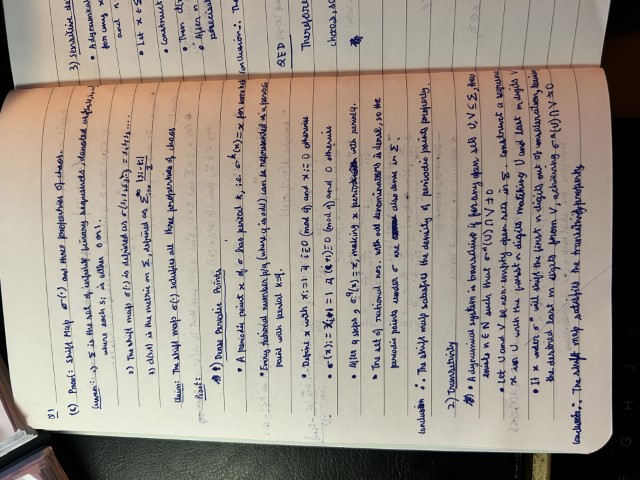 Q1
(c) Proof: Shift Map σ(·) and three properties of chaos.
Given: 1) Σ is the set of infinite binary sequences, denoted as
where each si is either 0 or 1.
2) The shift map σ(·) is defined as σ(s1s2s3...) = s2s3s4...
3) d(s,t) is the metric on Σ, defined as Σ∞ |si-ti|/2
Claim: The shift map σ(·) satisfies all three properties of chaos
Proof:
1) Dense Periodic Points
• A periodic point x of σ has period k, i.e. σ^k(x) = x for some k
• Every rational number p/q (where q is odd) can be represented as a periodic
point with period k=q.
• Define x with xi = 1 if i≡0 (mod q) and xi = 0 otherwise
• σ(x)i = xi+1 = 1 if (i+1)≡0 (mod q) and 0 otherwise
• After q steps, σ^q(x) = x, making x periodic with period q.
• The set of rational nos. with odd denominators is dense, so the
periodic points under σ are also dense in Σ.
Conclusion ∴ The shift map satisfies the density of periodic points property.
2) Transitivity
• A dynamical system is transitive if for any open sets U,V ⊆ Σ, there
exists n ∈ N such that σ^n(U) ∩ V ≠ 0
• Let U and V be non-empty open sets in Σ. Construct a sequence
x in U with the first n digits matching U and last m digits V
• If x under σ^n will shift the first n digits out of consideration,
the desired last m digits from V, achieving σ^n(U) ∩ V ≠ 0
Conclusion ∴ The shift map satisfies the transitivity property
3) Sensitive
• A dynamical
for any x
and n
• Let x ∈ Σ
• Construct
• Then
• After n
precisel
Conclusion: The
QED
Therefore
chaos, so